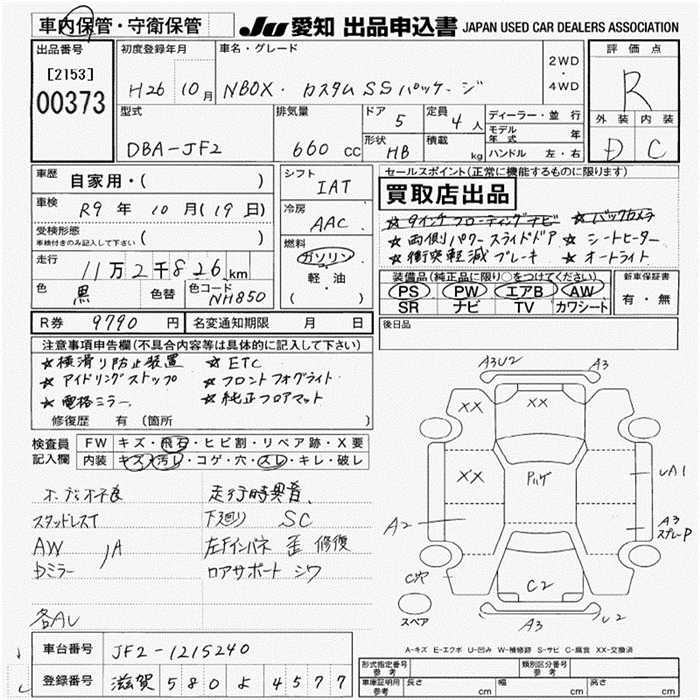 車内保管・守衛保管
JU 愛知 出品申込書 JAPAN USED CAR DEALERS ASSOCIATION
出品番号
[2153]
00373
初度登録年月
H26 10月
車名・グレード
NBOX・カスタムSSパッケージ
2WD
・
4WD
評価点
R
外装 内装
D C
型式
DBA-JF2
排気量
660 cc
ドア
5
定員
4 人
形状
HB
積載
kg
ディーラー・並行
モデル年式 年
ハンドル 左・右
車歴
自家用・( )
車検
R9 年 10 月 (19 日)
受検形態
車検付きのみ記入して下さい ( )
走行
11万2千826 km
色
黒
色替
色コード
NH850
R券 9790 円
名変通知期限 月 日
シフト
IAT
冷房
AAC
燃料
ガソリン
・
軽・油
( )
セールスポイント(正常に機能するものに限ります)
買取店出品
★9インチフローティングナビ ★バックカメラ
★両側パワースライドドア ★シートヒーター
★衝突軽減ブレーキ ★オートライト
装備品(純正品に限り○をつけてください)
PS PW エアB AW
SR ナビ TV カワシート
新車保証書
有・無
後日品
注意事項申告欄(不具合箇所は具体的に記入して下さい)
★横滑り防止装置 ★ETC
★アイドリングストップ ★フロントフォグライト
★電格ミラー ★純正フロアマット
修復歴 有 (箇所 )
検査員
記入欄
FW キズ・飛石・ヒビ割・リペア跡・X要
内装 キズ・汚レ・コゲ・穴・スレ・キレ・破レ
走行時異音
スタッドレスT
下廻り SC
AW
A
左Fインパネ 歪 修復
Dミラー
ロアサポート シワ
各AU
車台番号 JF2-1215240
登録番号 滋賀 580 よ 4577
A3U2
A3
XX
XX
XX
UA1
A2
A3
スプレーP
C穴
C2
スペア
A3
U2
A-キズ E-エクボ U-凹み W-補修跡 S-サビ C-腐食 XX-交換済
形式指定番号
参考
類別区分番号
参考
車庫証明用
参考
長さ cm
幅 cm
高さ cm